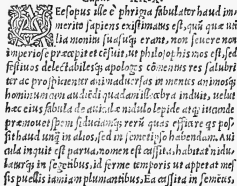 Aesopus ille è phrigia fabulator haud im
merito sapiens existimatus est, quũ quæ uti
lia monitu suasuq; erant, non seuere non
imperiose præcepit et cẽsuit, ut philosophis mos est, sed
festiuos delectabilesq; apologos cõmentus res salubri
ter ac prospicienter animaduersas in mentes animosq;
hominum cum audẽdi quadam illecebra induit, uelut
hæc eius fabula de auiculæ nidulo lepide atq; iucunde
præmonet spem fiduciamq; rerũ quas efficere qs pos
sit haud unq̃ in alios, sed in semetipso habendam. Aui
cula inquit est parua, nomen est cassita, habitat nidu
laturq; in segetibus, id ferme temporis ut appetat mes
sis pullis iamiam plumantibus. Ea cassita in semetes,